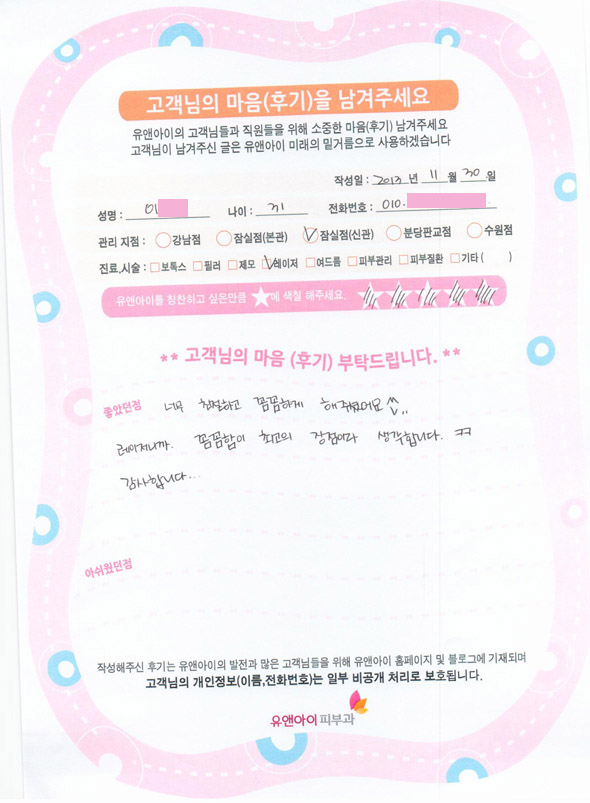 고객님의 마음(후기)을 남겨주세요
유앤아이의 고객님들과 직원들을 위해 소중한 마음(후기) 남겨주세요
고객님이 남겨주신 글은 유앤아이 미래의 밑거름으로 사용하겠습니다
작성일 : 2013 년 11 월 30 일
성명 : 이 나이 : 31 전화번호 : 010.
관리 지점 : 강남점 잠실점(본관) 잠실점(신관) 분당판교점 수원점
진료,시술 : 보톡스 필러 제모 레이저 여드름 피부관리 피부질환 기타 ( )
유앤아이를 칭찬하고 싶은만큼 ★에 색칠 해주세요. ★★★★★
** 고객님의 마음 (후기) 부탁드립니다. **
좋았던점 너무 친절하고 꼼꼼하게 해주셨어요 ^^
레이저니까. 꼼꼼함이 최고의 강점이라 생각합니다. ㅋㅋ
감사합니다...
아쉬웠던점
작성해주신 후기는 유앤아이의 발전과 많은 고객님들을 위해 유앤아이 홈페이지 및 블로그에 기재되며
고객님의 개인정보(이름,전화번호)는 일부 비공개 처리로 보호됩니다.
유앤아이피부과